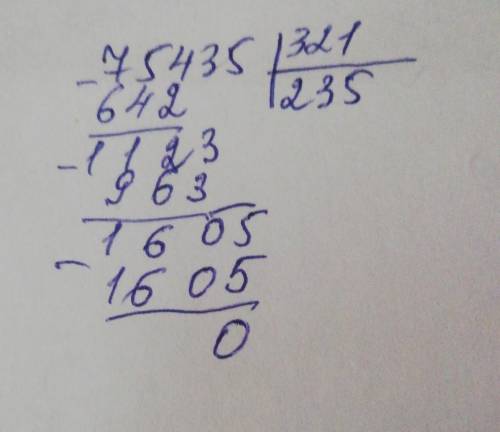 - 75435 | 321
642 | 235
- 1123
963
1605
- 1605
0